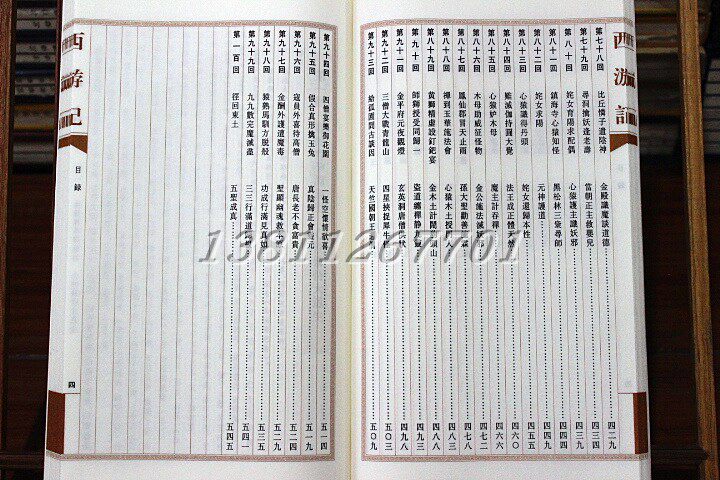 西游記
第七十八回 比丘憐子遣陰神 金殿識魔談道德 四二九
第七十九回 尋洞擒妖逢老壽 當朝正主救嬰兒 四三四
第八十回 姹女育陽求配偶 心猿護主識妖邪 四三九
第八十一回 鎮海寺心猿知怪 黑松林三衆尋師 四四
第八十二回 姹女求陽 元神護道
第八十三回 心猿識得丹頭 姹女還歸本性 四五五
第八十四回 難滅伽持圓大覺 法王成正體天然 四六〇
第八十五回 心猿妒木母 魔主計吞禪 四六六
第八十六回 木母助威征怪物 金公施法滅妖邪 四七二
第八十七回 鳳仙郡冒天止雨 孫大聖勸善施霖 四七八
第八十八回 禪到玉華施法會 心猿木土授門人 四八三
第八十九回 黃獅精虛設釘鈀宴 金木土計鬧豹頭山 四八八
第九十回 師獅授受同歸一 盜道纏禪靜九靈 四九三
第九十一回 金平府元夜觀燈 玄英洞唐僧供狀 四九八
第九十二回 三僧大戰青龍山 四星挾捉犀牛怪 五〇三
第九十三回 給孤園問古談因 天竺國朝王遇偶 五〇九
第九十四回 四僧宴樂御花園 一怪空懷情欲喜 五一四
第九十五回 假合真形擒玉兔 真陰歸正會靈元 五一九
第九十六回 寇員外喜待高僧 唐長老不貪富貴 五二四
第九十七回 金酬外護遭魔毒 聖顯幽魂救本原 五二九
第九十八回 猿熟馬馴方脫殼 功成行滿見真如 五三五
第九十九回 九九數完魔滅盡 三三行滿道歸根 五四一
第一百回 徑回東土 五聖成真 五四五
西游記
目録
四
13811267701